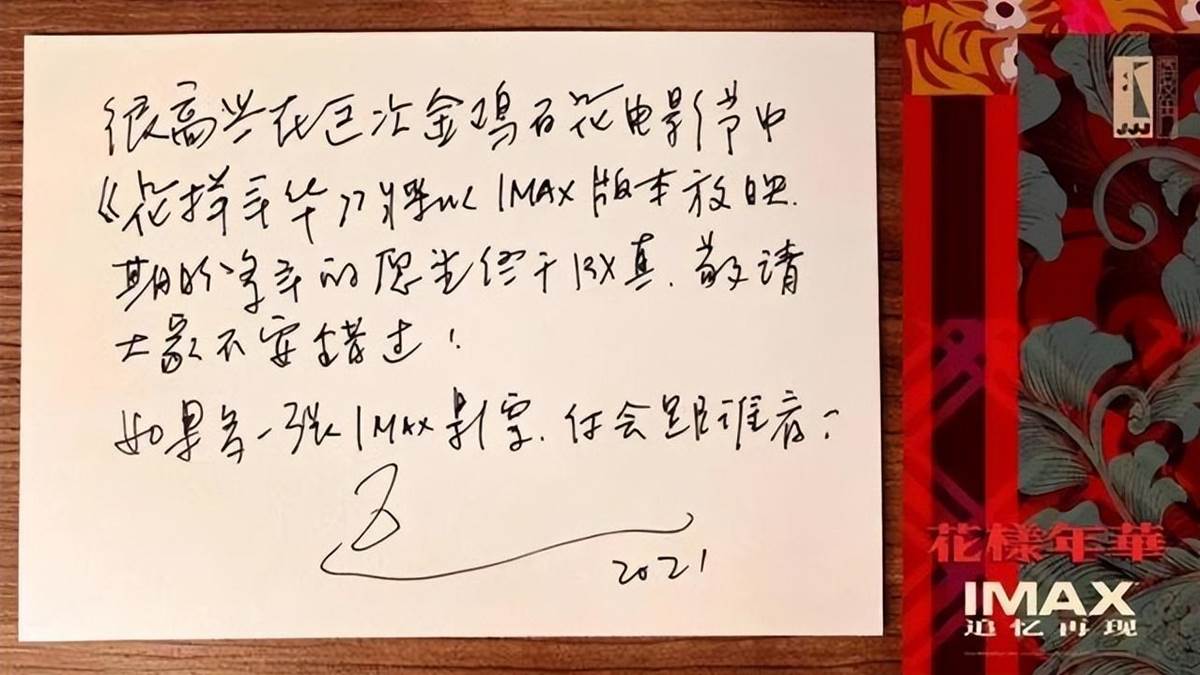 很高兴在这次金鸡百花电影节中
《花样年华》将以IMAX版本放映.
期盼多年的愿望终于成真.敬请
大家不要错过！
如果多一张IMAX影票.你会跟谁看？
2021
花樣年華
IMAX
追忆再现